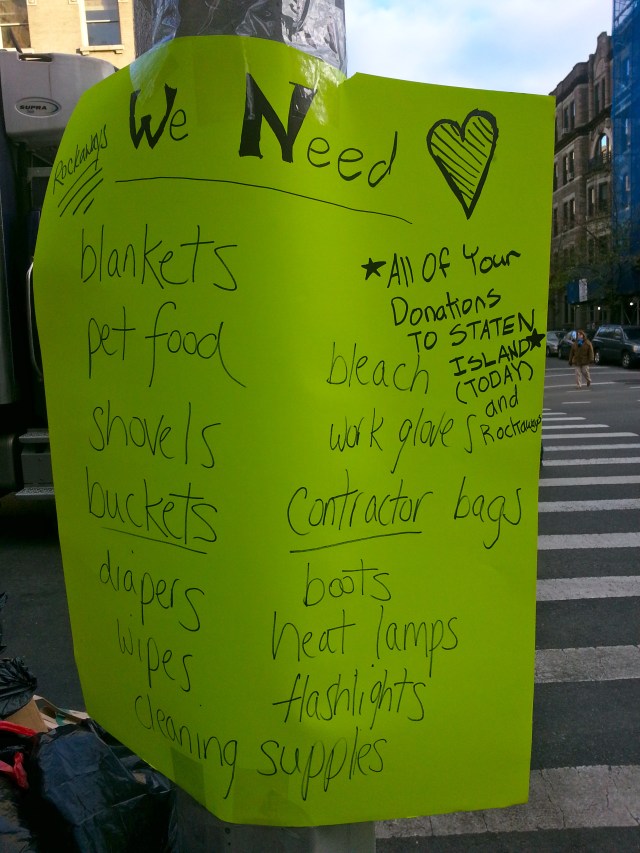 SUPRA
Rockaways
We Need
blankets
pet food
shovels
buckets
diapers
wipes
cleaning supples
★All Of Your
Donations
TO STATEN
ISLAND★
(TODAY)
and
Rockaways
bleach
work gloves
contractor bags
boots
heat lamps
flashlights